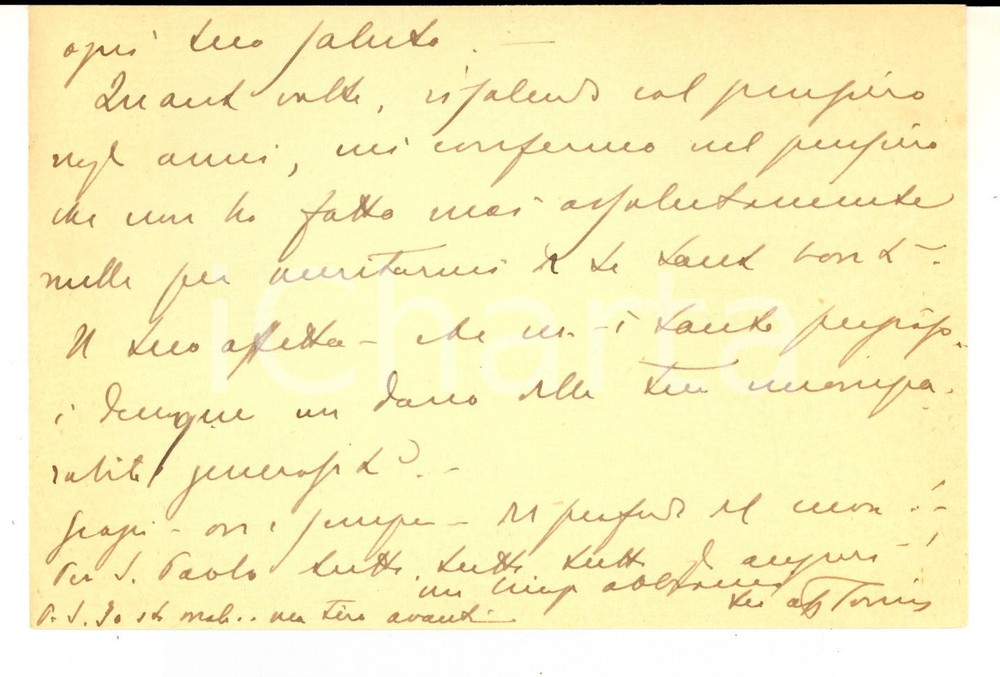 ogni tuo saluto. —
Quante volte, risalendo col pensiero
negli anni, mi confermo nel pensiero
che non ho fatto mai assolutamente
nulla per meritarmi da te tanta bontà.
Il tuo affetto – che mi è tanto prezioso –
è dunque un dono della tua incompa-
rabile generosità. –
Grazie – ora e sempre – dal profondo del cuore! –
Per S. Paolo tutti, tutti, tutti gli auguri – !
un lungo abbraccio
tuo aff
P. S. Io sto male.. ma tiro avanti –
iCharta